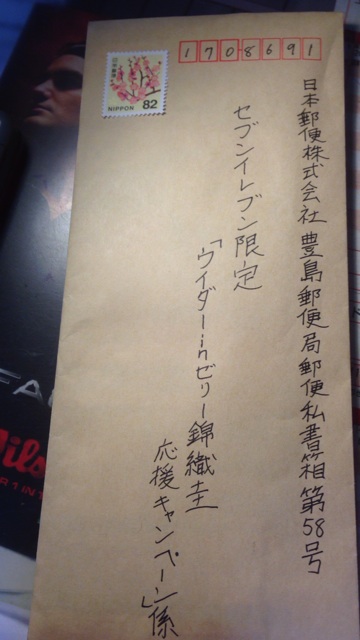 日本郵便
NIPPON 82
1708691
日本郵便株式会社 豊島郵便局郵便私書箱第58号
セブンイレブン限定
「ウイダーinゼリー錦織圭
応援キャンペーン」係